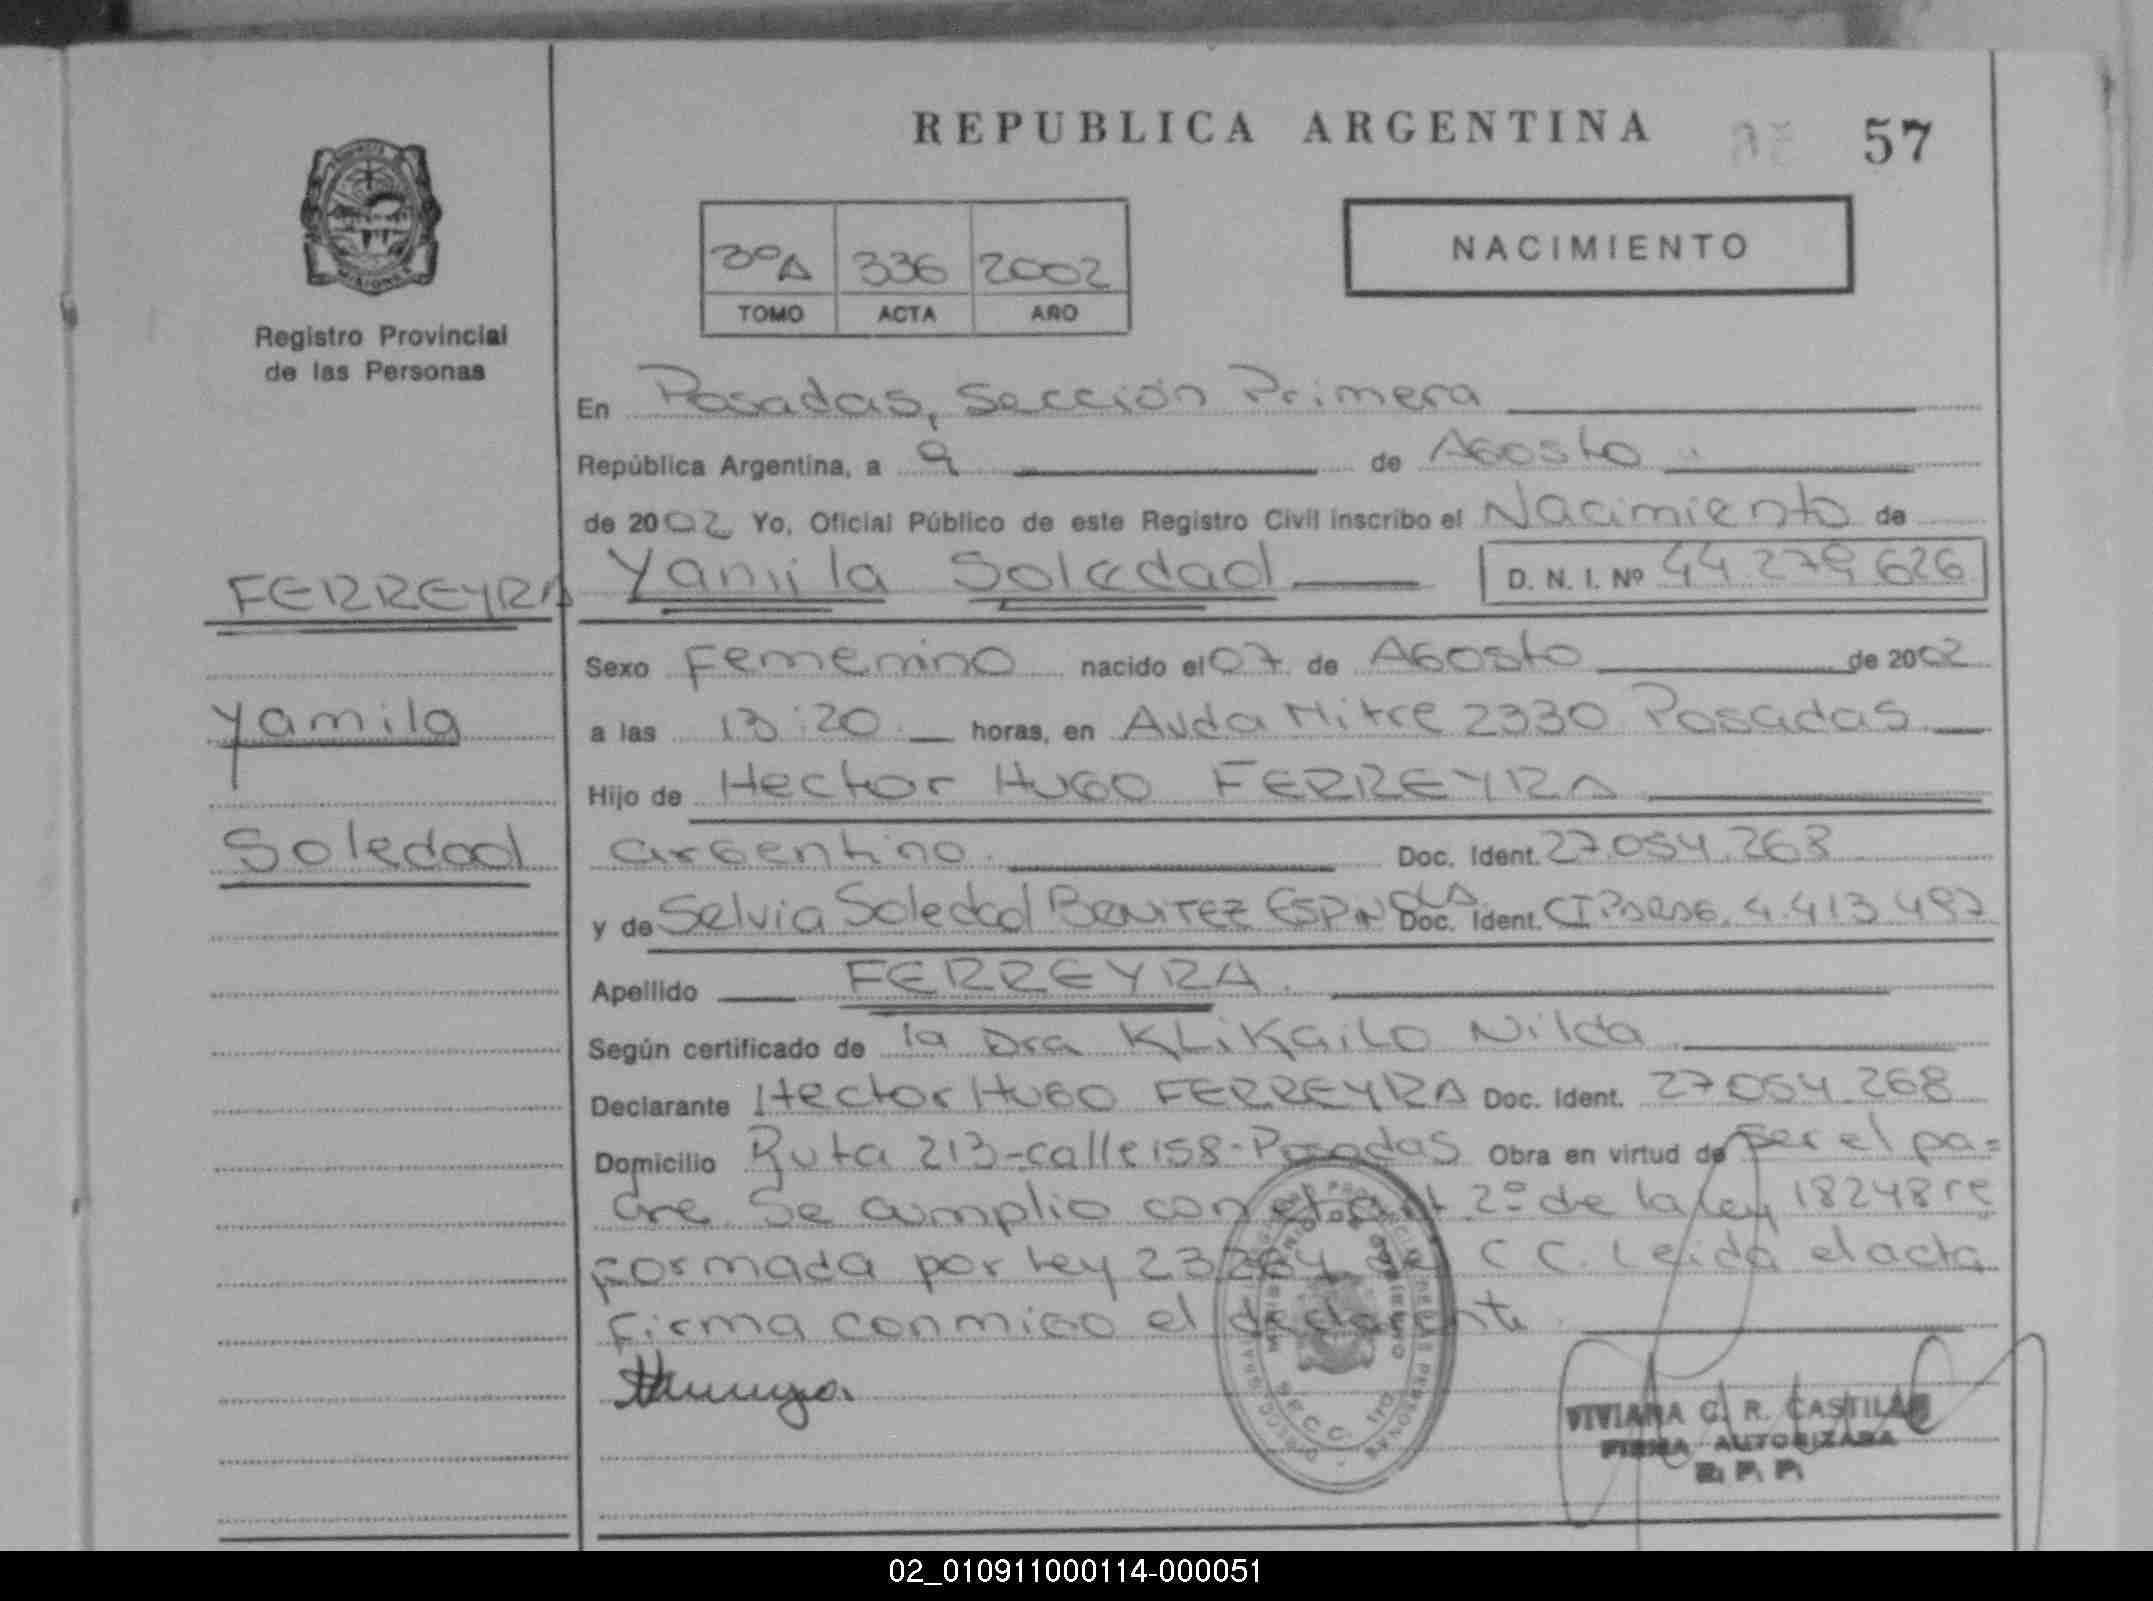 REPUBLICA ARGENTINA
57
NACIMIENTO
3ºA 336 2002
TOMO ACTA AÑO
Registro Provincial
de las Personas
En Posadas, Sección Primera
República Argentina, a 9 de Agosto
de 2002 Yo, Oficial Público de este Registro Civil inscribo el Nacimiento de
FERREYRA Yamila Soledad D. N. I. Nº 44 279 626
Sexo Femenino nacido el 07 de Agosto de 2002
Yamila
a las 13:20 horas, en Avda Mitre 2330 Posadas
Hijo de Hector Hugo FERREYRA
Soledad
argentino. Doc. Ident. 27.054.268
y de Selvia Soledad BENITEZ ESPINOLA Doc. Ident. CI 4.413.497
Apellido FERREYRA.
Según certificado de la Dra KLiKailo Nilda
Declarante Hector Hugo FERREYRA Doc. Ident. 27054.268
Domicilio Ruta 213-calle 158-Posadas Obra en virtud de ser el pa=
dre. Se cumplio con el art 2º de la ley 18248 re
formada por ley 23264 del C C. Leida el acta
firma conmigo el declarante
VIVIANA G. R. CASTILLO
FIRMA AUTORIZADA
R. P. P.
02_010911000114-000051